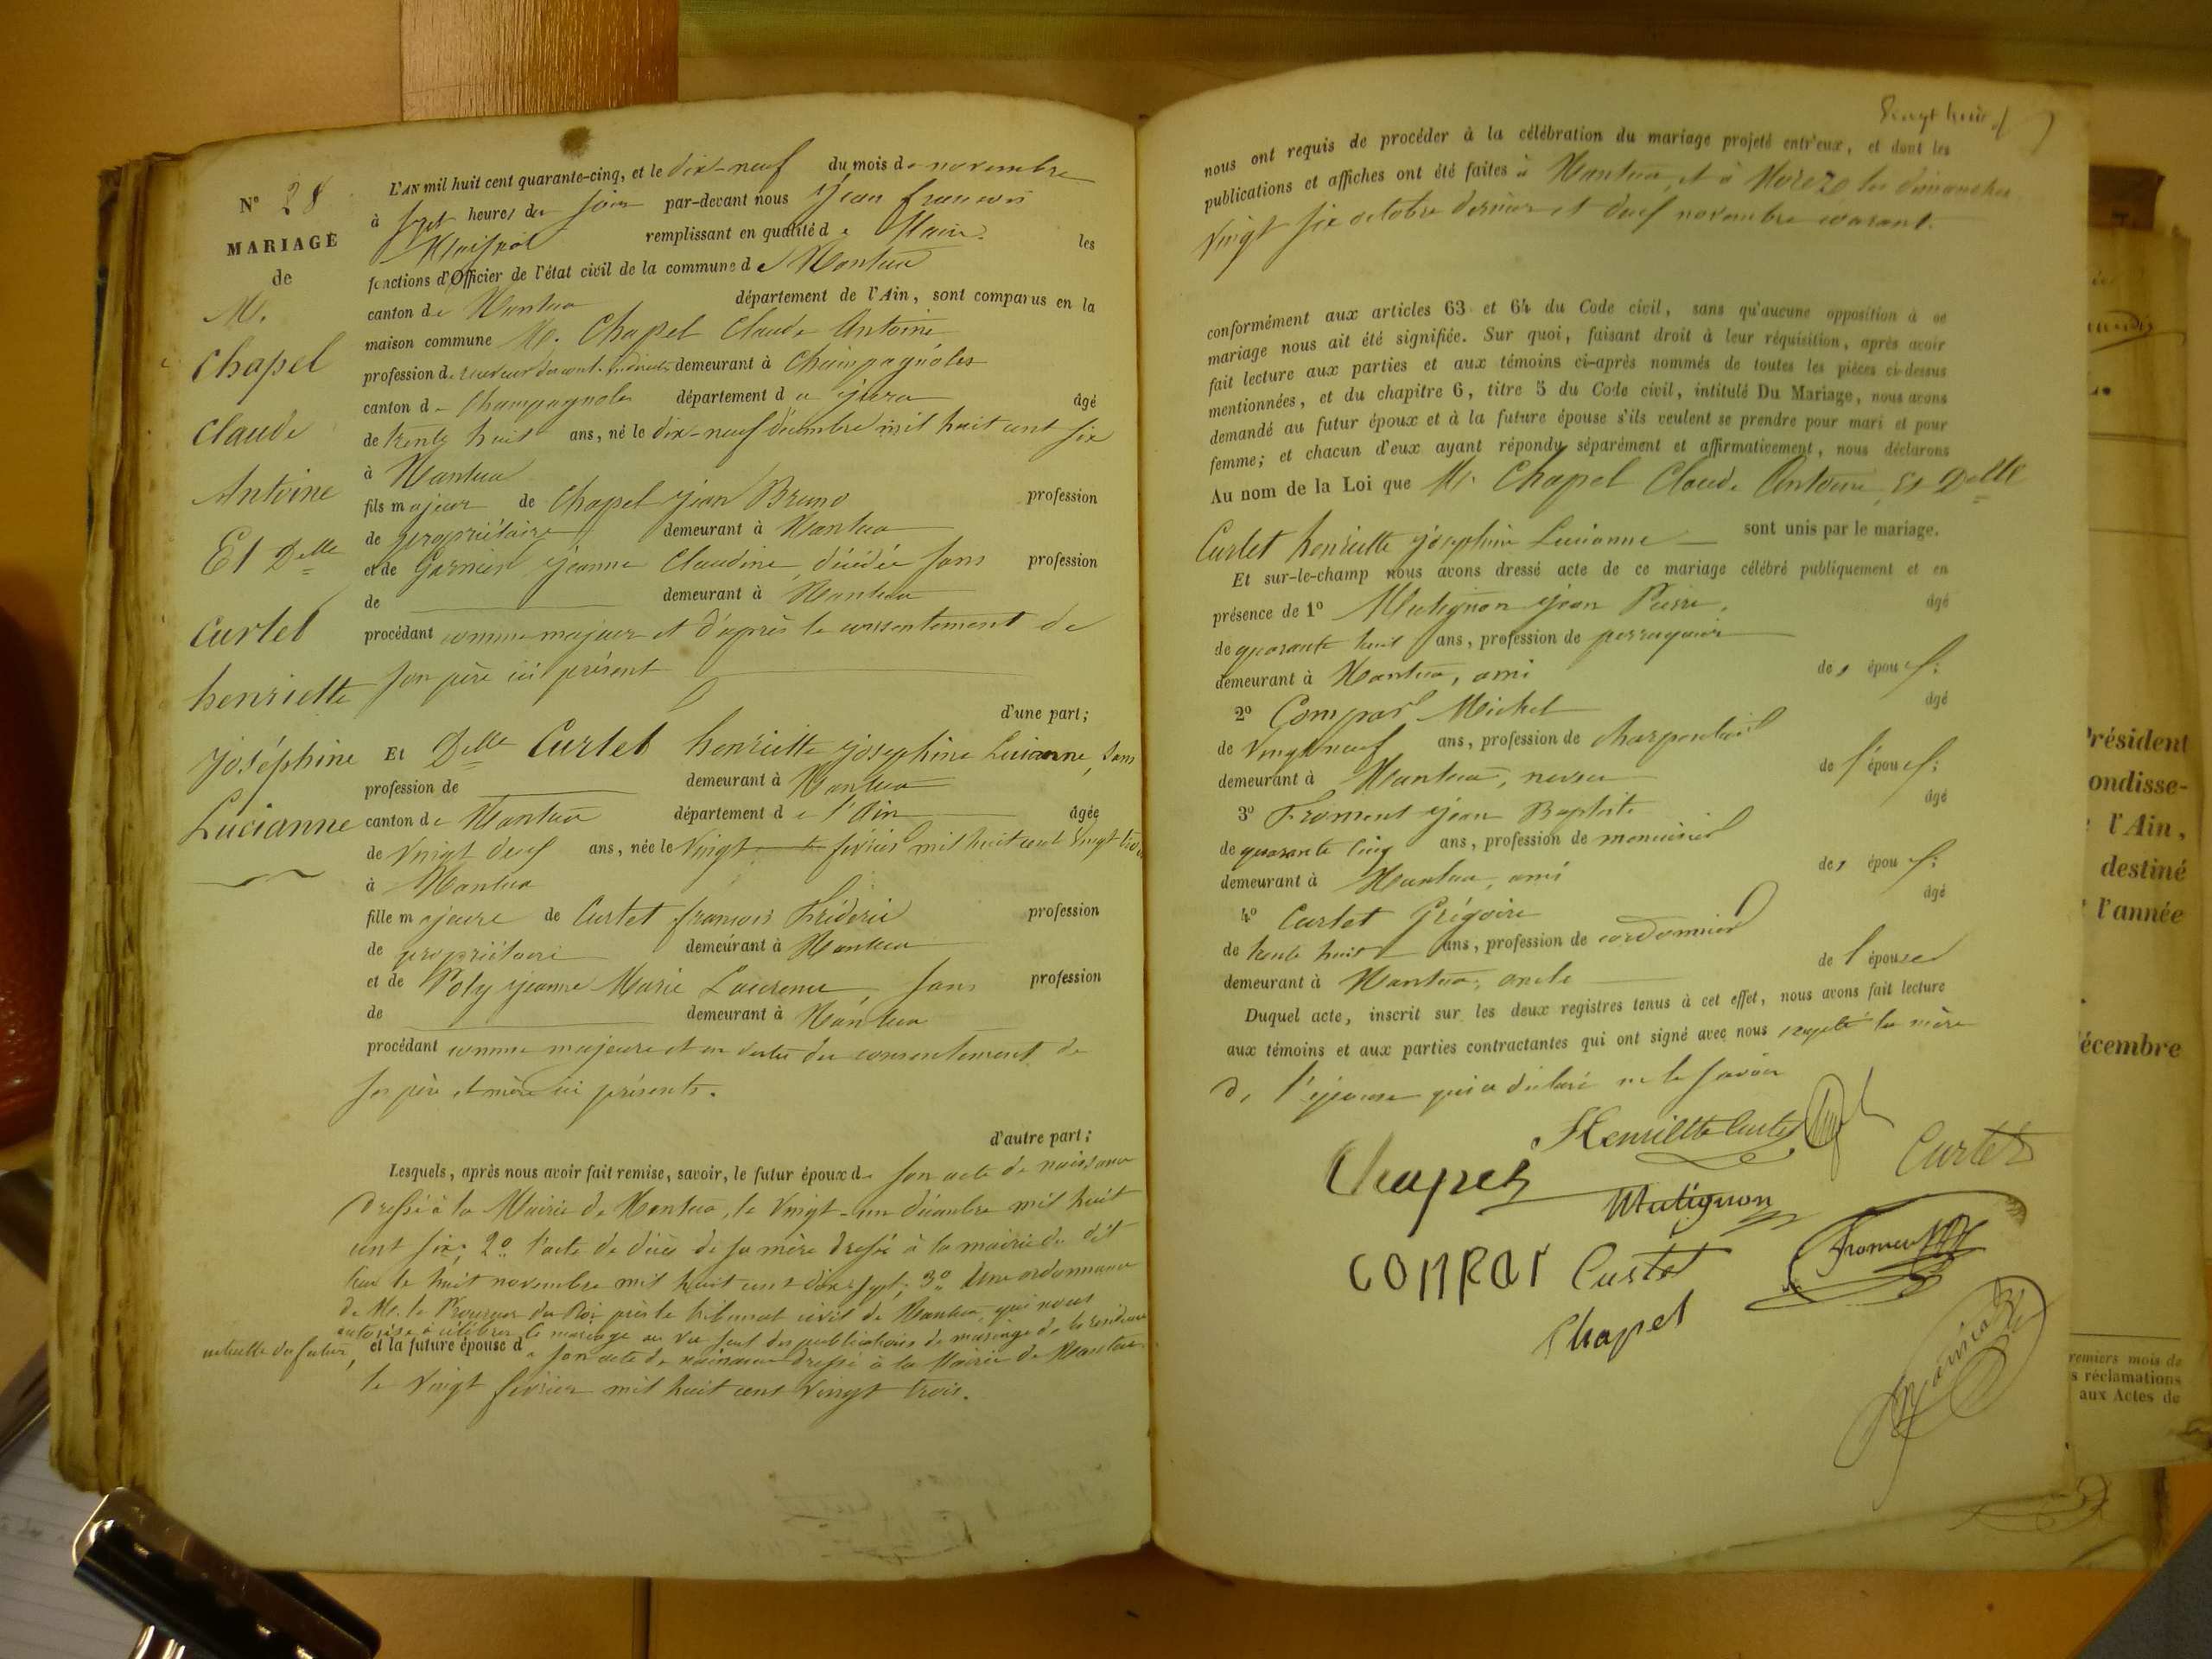 N° 28
MARIAGE
de
M.
Chapel
Claude
Antoine
Et Delle
Curtet
henriette
joséphine
Lucianne
L'AN mil huit cent quarante-cinq, et le dix-neuf du mois de novembre
à sept heures du soir par-devant nous Jean françois
remplissant en qualité de Maire les
fonctions d'Officier de l'état civil de la commune de Nantua
canton de Nantua département de l'Ain, sont comparus en la
maison commune M. Chapel Claude Antoine
profession de receveur des cont. indirectes demeurant à Champagnoles
canton de Champagnoles département du jura âgé
de trente huit ans, né le dix-neuf décembre mil huit cent six
à Nantua
fils majeur de Chapel jean Bruno profession
de propriétaire demeurant à Nantua
et de Garnier jeanne Claudine, décédée sans profession
de demeurant à Nantua
procédant comme majeur et d'après le consentement de
son père ici présent
d'une part;
Et Delle Curtet henriette josephine Lucianne, sans
profession de demeurant à Nantua
canton de Nantua département de l'Ain âgée
de vingt deux ans, née le vingt février mil huit cent vingt trois
à Nantua
fille majeure de Curtet françois fréderic profession
de propriétaire demeurant à Nantua
et de Poly jeanne Marie Laurence sans profession
de demeurant à Nantua
procédant comme majeure et en vertu du consentement de
ses père et mère ici présents.
d'autre part;
Lesquels, après nous avoir fait remise, savoir, le futur époux de son acte de naissance
dressé à la Mairie de Nantua, le vingt-un décembre mil huit
cent six; 2° l'acte de décès de sa mère dressé à la mairie du dit
lieu le huit novembre mil huit cent dix sept; 3° Une ordonnance
de M. le Procureur du Roi près le tribunal civil de Nantua, qui nous
autorise à célébrer le mariage au vu seul des publications de mariage de la residence
actuelle du futur, et la future épouse de son acte de naissance dressé à la Mairie de Nantua
le vingt février mil huit cent vingt trois.
Vingt huit
nous ont requis de procéder à la célébration du mariage projeté entr'eux, et dont les
publications et affiches ont été faites à Nantua, et à Morez les dimanches
vingt six octobre dernier et deux novembre courant.
conformément aux articles 63 et 64 du Code civil, sans qu'aucune opposition à ce
mariage nous ait été signifiée. Sur quoi, faisant droit à leur réquisition, après avoir
fait lecture aux parties et aux témoins ci-après nommés de toutes les pièces ci-dessus
mentionnées, et du chapitre 6, titre 5 du Code civil, intitulé Du Mariage, nous avons
demandé au futur époux et à la future épouse s'ils veulent se prendre pour mari et pour
femme; et chacun d'eux ayant répondu séparément et affirmativement, nous déclarons
Au nom de la Loi que M. Chapel Claude Antoine Et Delle
Curtet henriette joséphine Lucianne sont unis par le mariage.
Et sur-le-champ nous avons dressé acte de ce mariage célébré publiquement et en
présence de 1° Mutignon jean Pierre, âgé
de quarante huit ans, profession de perruquier
demeurant à Nantua, ami des époux;
2° Compar Michel âgé
de vingt neuf ans, profession de charpentier
demeurant à Nantua, neveu de l'époux;
3° Froment jean Baptiste âgé
de quarante cinq ans, profession de menuisier
demeurant à Nantua, ami des époux;
4° Curtet Grégoire âgé
de trente huit ans, profession de cordonnier
demeurant à Nantua, oncle de l'épouse
Duquel acte, inscrit sur les deux registres tenus à cet effet, nous avons fait lecture
aux témoins et aux parties contractantes qui ont signé avec nous excepté la mère
de l'épouse qui a déclaré ne le savoir
Henriette Curtet
Chapel
Curtet
Mutignon
compar
Curtet
Froment
Chapel
Président
ondisse-
l'Ain,
destiné
l'année
écembre
remiers mois de
s réclamations
aux Actes de